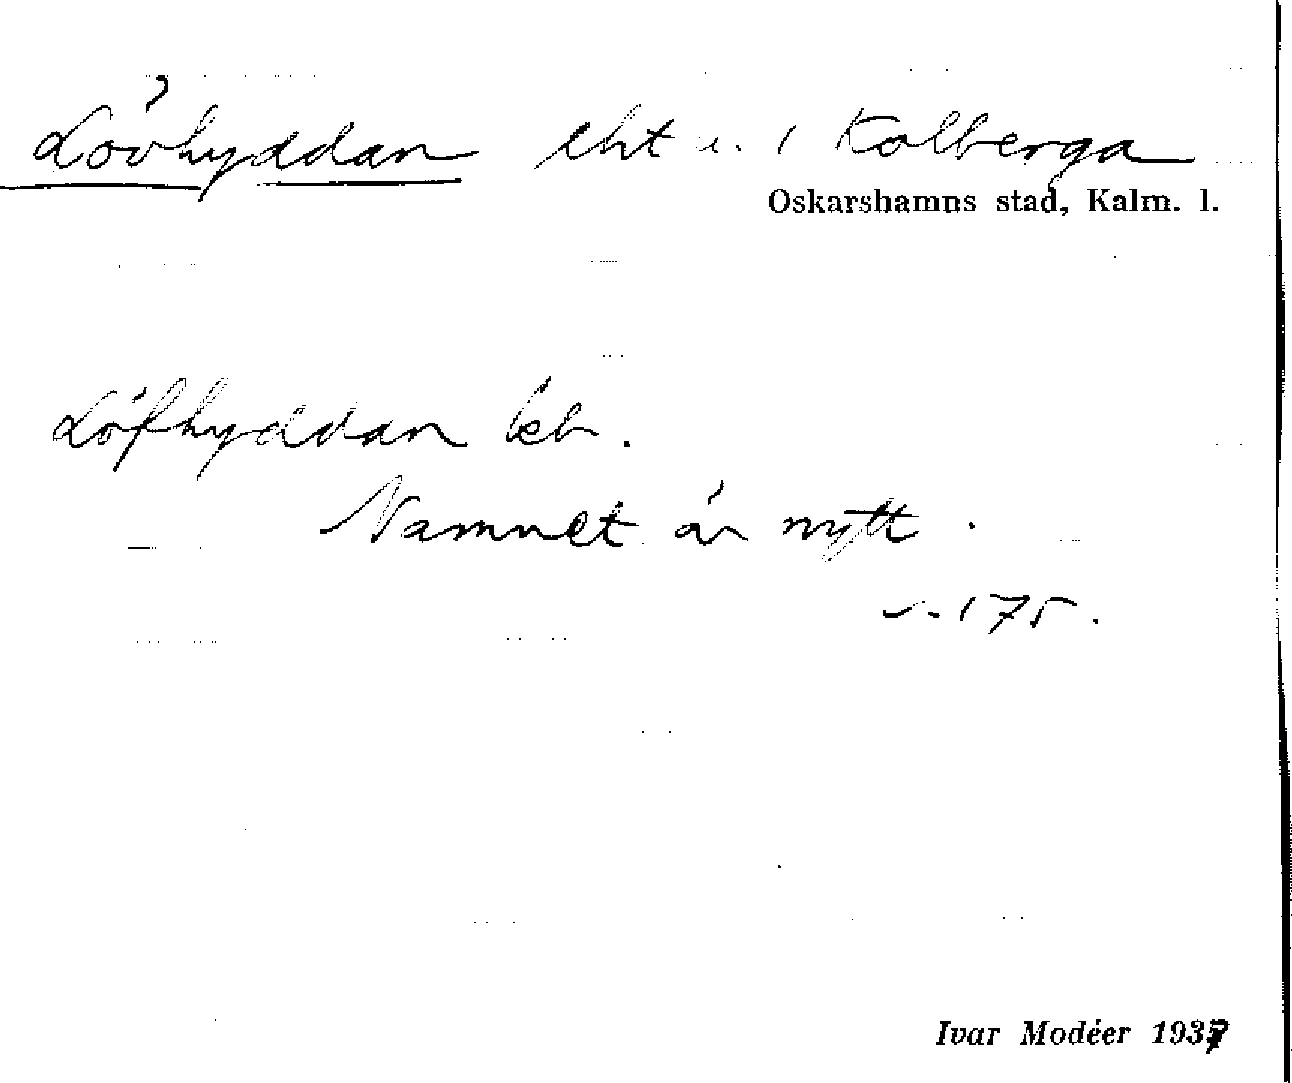 Lövhyddan lht u. 1 Kolberga
Oskarshamns stad, Kalm. l.
Löfhyddan kb.
Namnet är nytt.
s. 175.
Ivar Modéer 1937